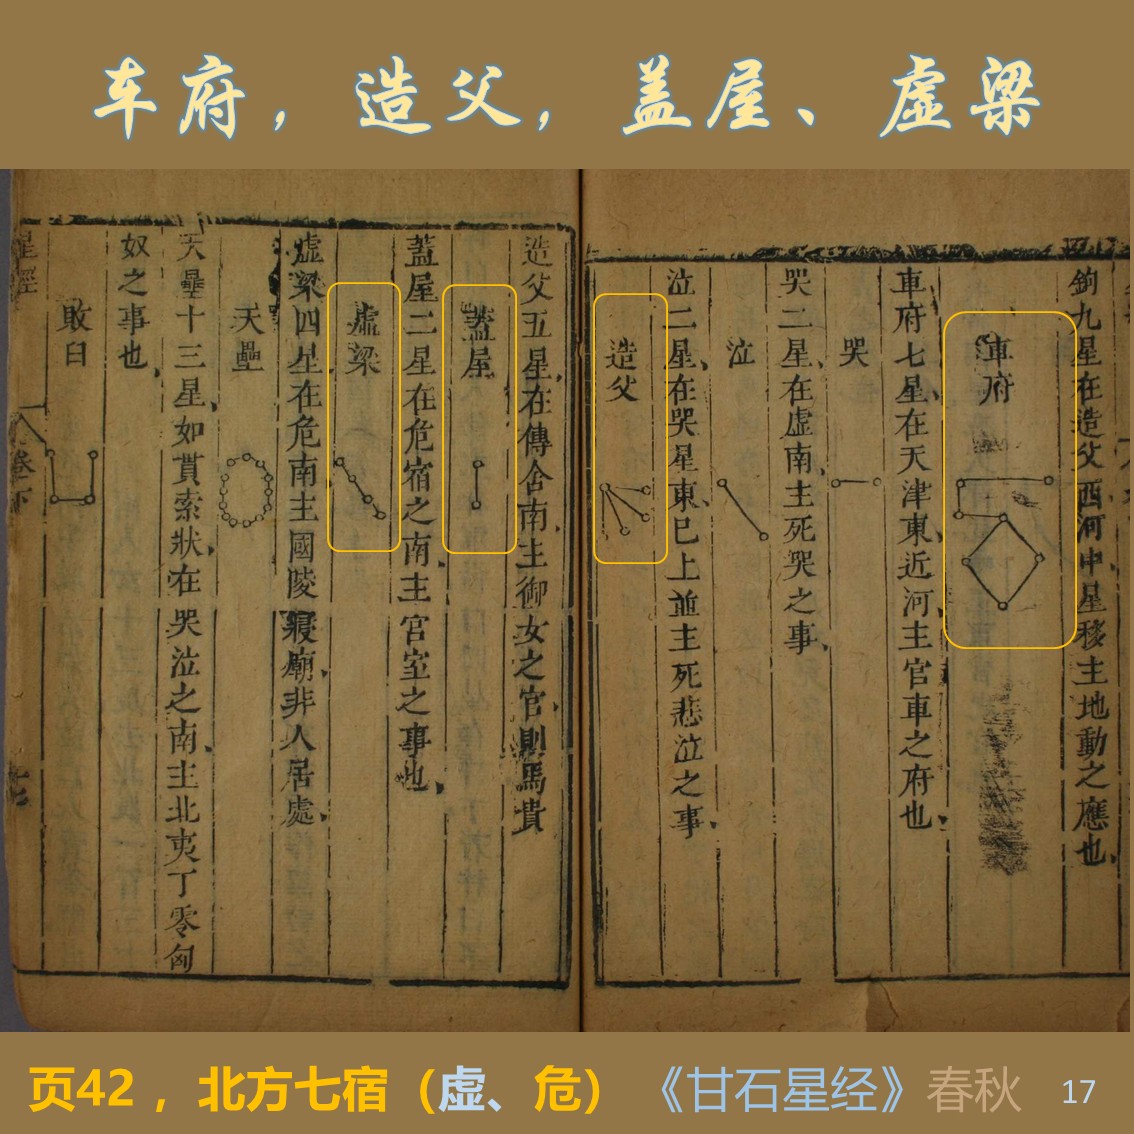 车府，造父，盖屋、虚梁
鈎九星在造父西河中星移主地動之應也
車府
車府七星在天津東近河主官車之府也
哭
哭二星在虛南主死哭之事
泣
泣二星在哭星東已上並主死悲泣之事
造父
造父五星在傳舍南主御女之官則馬貴
蓋屋
蓋屋二星在危宿之南主宮室之事也
虛梁
虛梁四星在危南主國陵寢廟非人居處
天壘
天壘十三星如貫索狀在哭泣之南主北夷丁零匈
奴之事也
敗臼
星經
卷下
页42，北方七宿（虚、危）《甘石星经》春秋 17